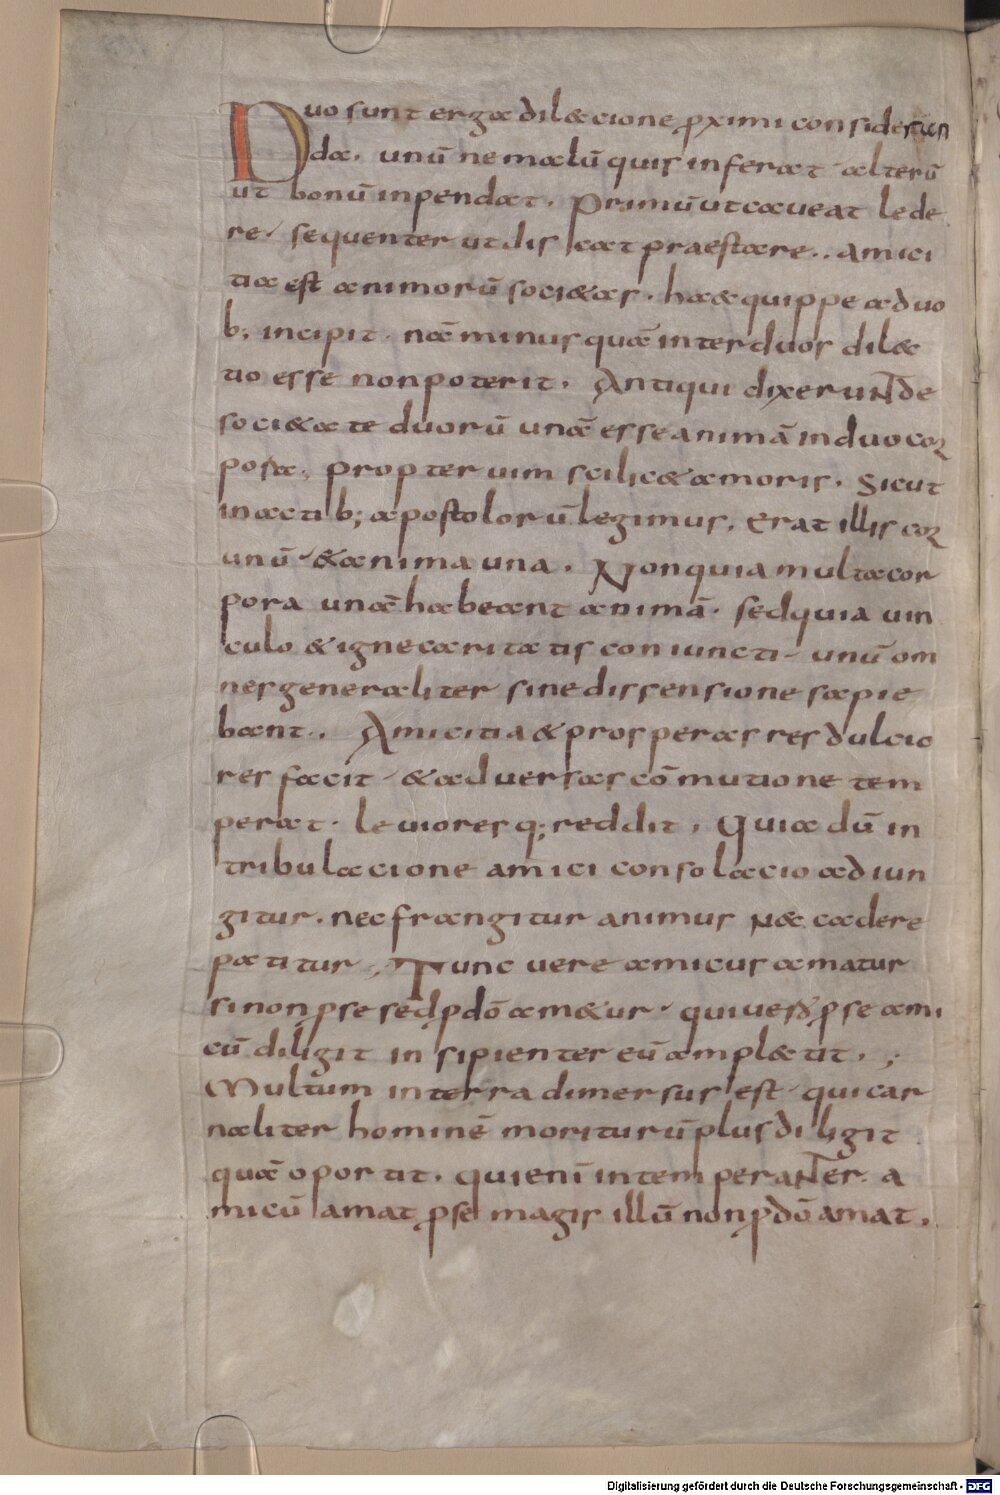 Duo sunt ergo dil&cione pximi consideran
da. unū ne malū quis inferat alterū
ut bonū inpendat. Primū ut caueat lede
re. sequenter ut discat praestare.. amici
tia est animorū soci&as. ha& quippe a duo
b; incipit. nā minus quā inter duos dil&
tio esse non poterit. Antiqui dixerunt de
soci&ate duorū unā esse animā in duo cor
pora. propter uim scilic& amoris. Sicut
in actib; apostolorū legimus. Erat illis cor
unū & anima una. Non quia multa cor
pora unā habeant animā. sed quia uin
culo & igne caritatis coniuncti unū om
nes generaliter sine dissensione sapie
bant.. Amicitia & prosperas res dulcio
res facit & aduersas cōmutione tem
perat. leuiores q; reddit. Quia dū in
tribulacione amici consolacio adiun
gitur. nec frangitur animus n& cadere
patitur. Tunc uere amicus amatur
si non pse sed pdō am&ur. qui uero pse ami
cū diligit insipienter eū ampl&tit. ;
Multum in terra dimersus est qui car
naliter hominē moriturū plus diligit
quā oportit. qui enī intemperanter a
micū amat pse magis illū non pdō amat.
Digitalisierung gefördert durch die Deutsche Forschungsgemeinschaft - DFG